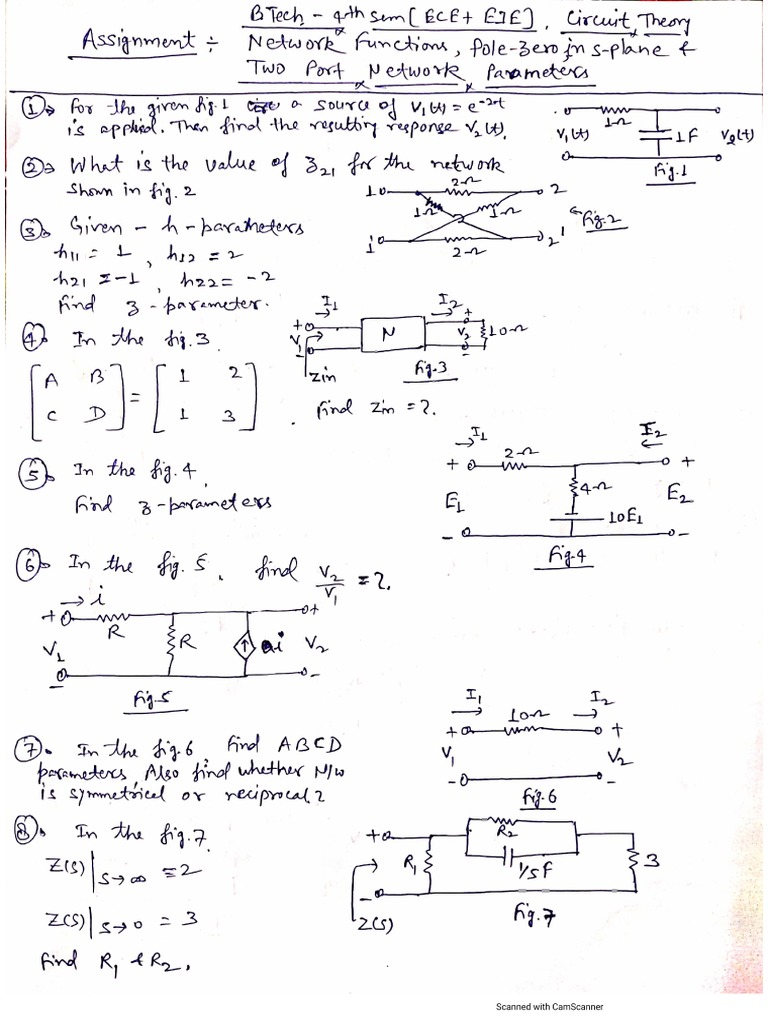 BTech - 4th sem [ECE+ EIE], Circuit Theory
Assignment ÷ Network Functions, Pole-Zero in s-plane &
Two Port Network Parameters
① For the given fig.1 a source of V₁(t) = e⁻²ᵗ
is applied. Then find the resulting response V₂(t).
1Ω
V₁(t)
1F
V₂(t)
Fig.1
② What is the value of z₂₁ for the network
shown in fig. 2
2Ω
1
2
1Ω
1Ω
1'
2'
2Ω
Fig.2
③ Given - h-parameters
h₁₁ = 1, h₁₂ = 2
h₂₁ = -1, h₂₂ = -2
Find z-parameter.
④ In the fig.3
[A B C D] = [1 2 1 3]
I₁
I₂
+
+
V₁
N
V₂
10Ω
-
-
Zin
Fig.3
Find Zin = ?.
⑤ In the fig.4
Find z-parameters
I₁
I₂
2Ω
+
+
4Ω
E₁
E₂
10E₁
-
-
Fig.4
⑥ In the fig. 5, find V₂/V₁ = ?.
i
+
+
R
R
V₁
i
V₂
-
-
Fig.5
⑦. In the fig.6 find ABCD
parameters, Also find whether N/w
is symmetrical or reciprocal?
I₁
I₂
10Ω
+
+
V₁
V₂
-
-
Fig.6
⑧. In the fig.7
Z(s)|s→∞ = 2
Z(s)|s→0 = 3
Find R₁ & R₂.
+
R₂
R₁
1/5F
3
-
Z(s)
Fig.7
Scanned with CamScanner